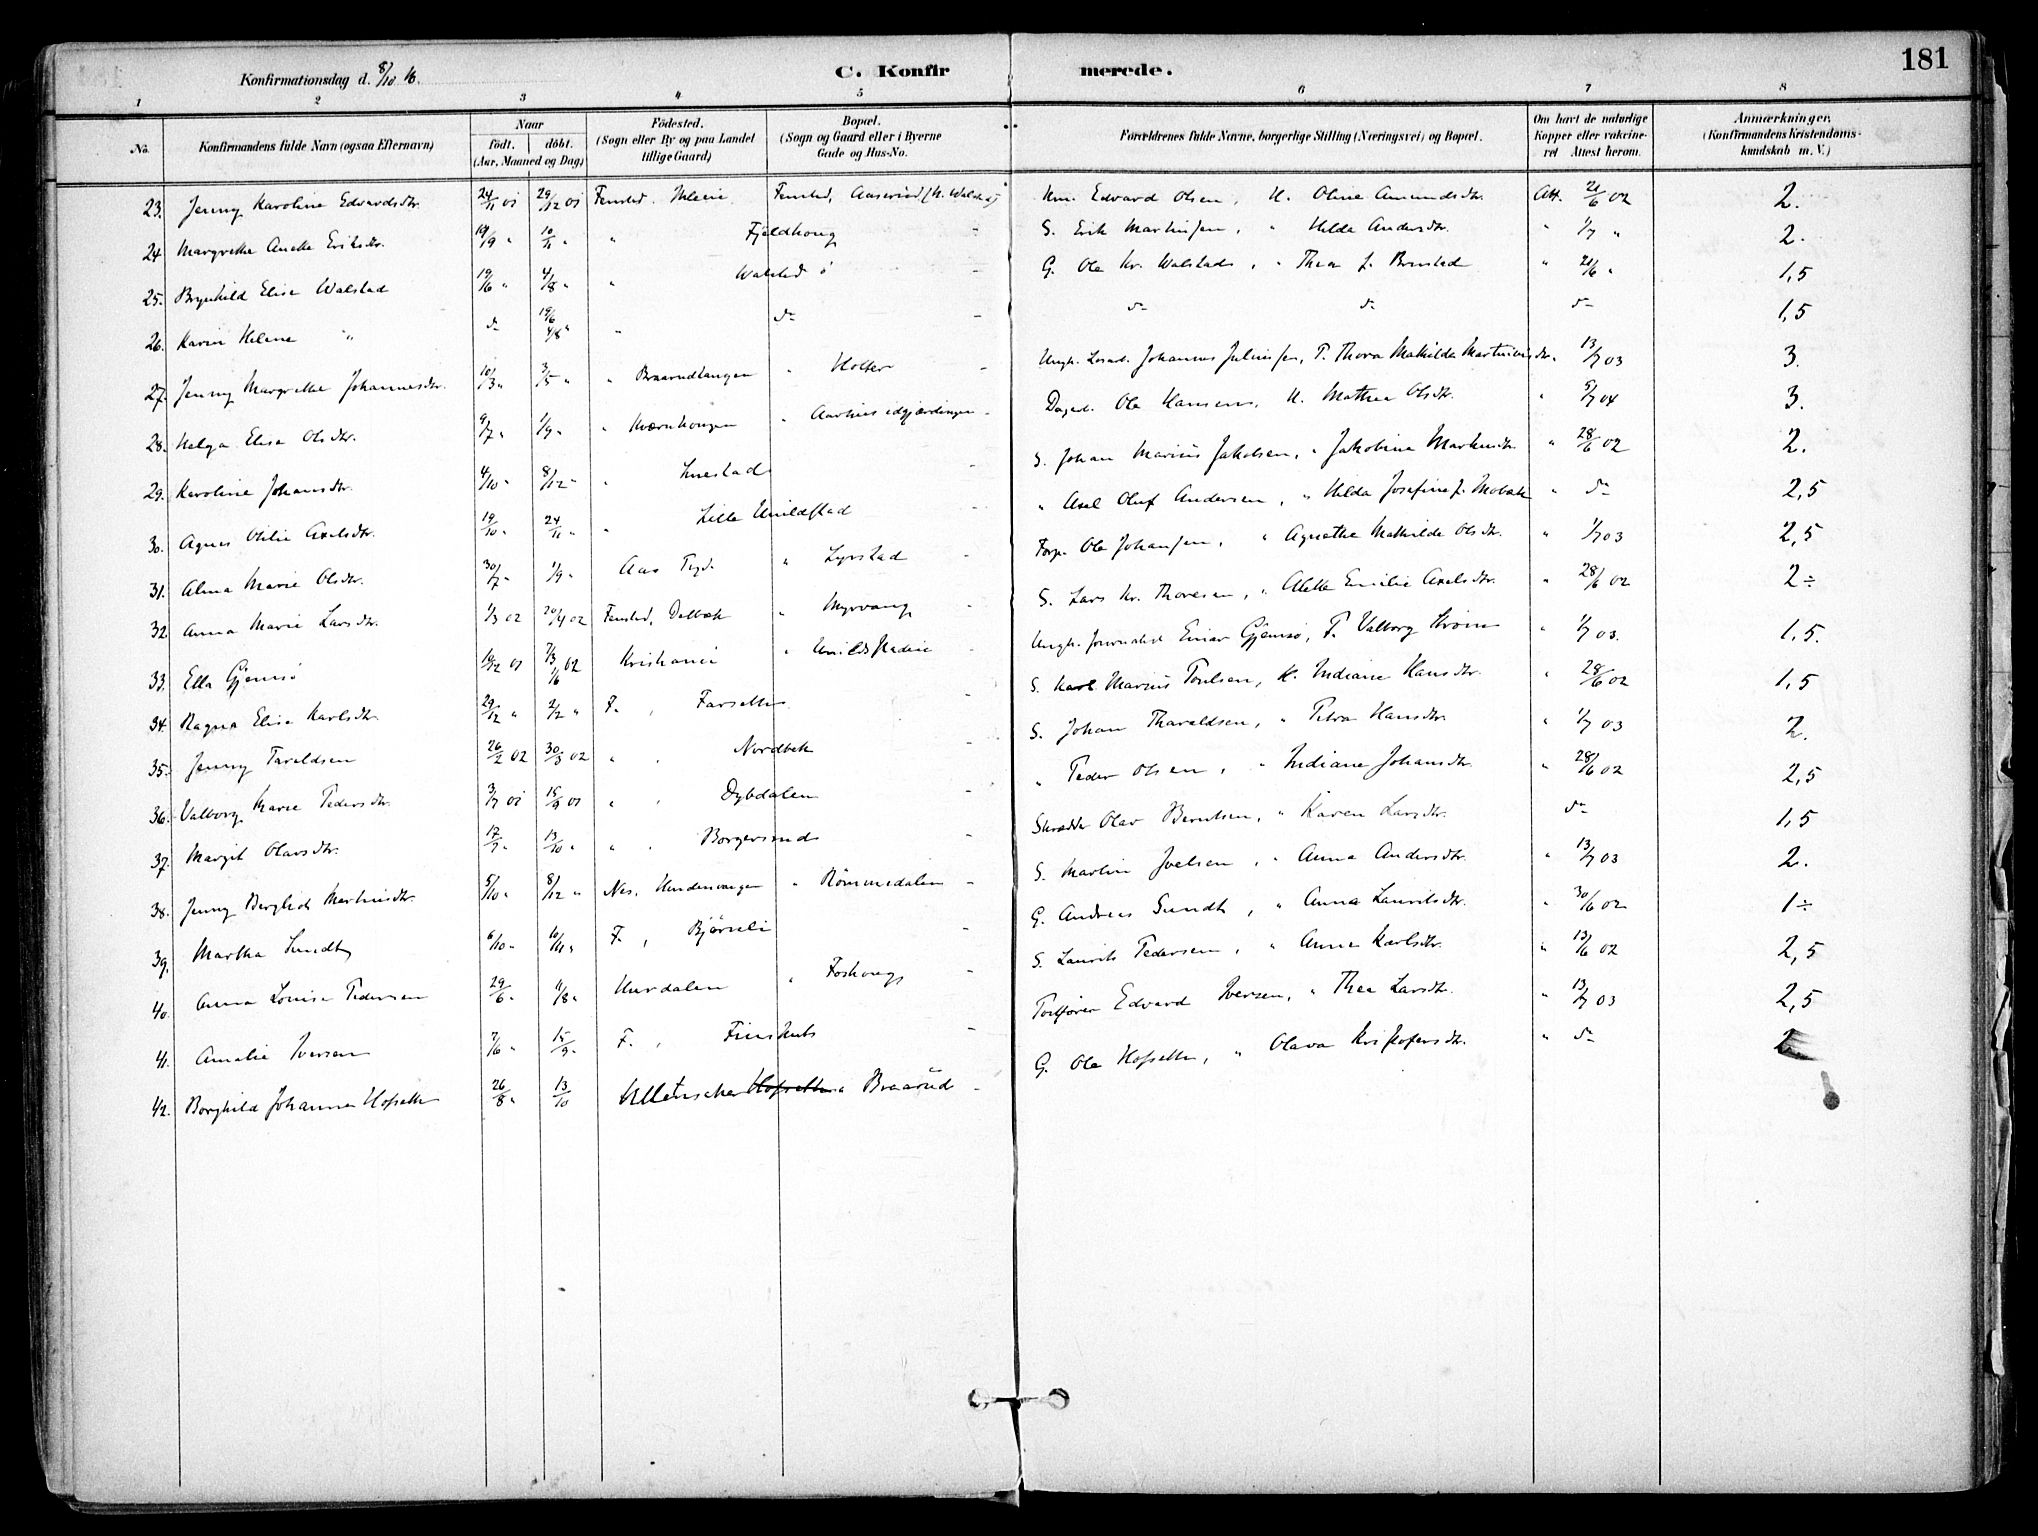 181
Konfirmationsdag d. 8/10 16.
C. Konfirmerede.
1 2 3 4 5 6 7 8
No. Konfirmandens fulde Navn (ogsaa Efternavn) Naar födt. döbt. (Aar, Maaned og Dag) Födested. (Sogn eller By og paa Landet tillige Gaard) Bopæl. (Sogn og Gaard eller i Byerne Gade og Hus-No. Forældrenes fulde Navne, borgerlige Stilling (Næringsvei) og Bopæl. Om havt de naturlige Kopper eller vakcineret Attest herom. Anmærkninger. (Konfirmandens Kristendomskundskab m. V.)
23. Jenny Karoline Edvardsdtr. 24/11 01 29/12 01 Fenstad, Fenstad, Aaserud (N. Walstad) Edvard Olsen, H. Oline Amundsdtr. Att. 21/6 02 2.
24 Margrethe Anette Eriksdtr. 14/9 " 10/11 " " Fjeldhoug - S. Erik Martinsen, " Hilda Andersdtr. " 1/7 " 2.
25. Brynhild Elise Walstad 19/6 " 4/8 " " Walstad ö - G. Ole Kr. Walstad, " Thea f. Brustad " 21/6 " 1,5
26. Karin Helene " do 19/6 4/8 " " do - do do do 1,5
27. Jenny Margrethe Johannesdtr. 10/3 " 3/5 " " Braarudtangen " Holter - Ungk. Johannes Juliussen, P. Thora Mathilde Martinsdtr. " 13/7 03 3.
28. Helga Elise Olsdtr. 9/7 " 1/9 " " Kværnhougen " Aarnes - Dagarb. Ole Hansen, H. Mathea Olsdtr. " 5/7 04 3.
29. Karoline Johansdtr. 4/10 " 8/12 " " - S. Johan Marius Jakobsen, " Jakobine Martinsdtr. " 28/6 02 2.
30. Agnes Otilie Axelsdtr. 19/10 " 24/11 " " Lille Unildstad - " Axel Oluf Andersen, " Hilda Josefine f. Mobæk " do 2,5
31. Alma Marie Olsdtr. 30/7 " 1/9 " Aas " Lyrstad - Forp. Ole Johansen, " Agnethe Mathilde Olsdtr. " 1/7 03 2,5
32 Anna Marie Larsdtr. 1/3 02 20/4 02 Fenstad, Dalbæk " Myrvang - S. Lars Kr. Thoresen, " Alette Emilie Axelsdtr. " 28/6 02 2÷
33. Ella Gjemsø 19/12 01 7/3 02 1/6 Kristiania " - Ungk. Journalist Einar Gjemsø, P. Valborg Strøm " 1/7 03. 1,5.
34. Ragna Elise Karlsdtr. 29/12 " 2/2 " F. , Farseth - S. Karl Marius Poulsen, H. Indiane Hansdtr. " 28/6 02 1,5
35. Jenny Taraldsen 26/2 02 30/3 02 " , Nordbæk - S. Johan Tharaldsen, " Petra Hansdtr. " 1/7 03 2.
36. Valborg Marie Pedersdtr. 3/7 01 15/9 01 " , Dybdalen - " Peder Olsen, " Indiane Johansdtr. " 28/6 02 2,5
37. Margit Olavsdtr. 17/9 " 13/10 " " , Borgersrud - Skrædder Olav Berntsen, " Karen Larsdtr. do 1,5
38. Jenny Bergliot Martinsdtr. 5/10 " 8/12 " Nes, Hundervangen " Römmesdalen - S. Martin Joelsen, " Anna Andersdtr. " 13/7 03 2.
39. Martha Sundt 6/10 " 10/11 " F. , Björneli - G. Andreas Sundt, " Anna Lauritsdtr. " 30/6 02 1÷
40. Anna Louise Pedersen 29/6 " 11/8 " Hurdalen " Foshoug - S. Laurits Pedersen, " Anna Karlsdtr. " 13/6 02 2,5
41. Amalie Iversen 7/6 " 15/9 " F. , - Edvard Iversen, " Thea Larsdtr. " 13/7 03 2,5
42. Borghild Johanne Hofseth 26/8 " 13/10 Ullensaker Hofseth " Braarud - G. Ole Hofseth, " Olava Kristofersdtr. " do 2